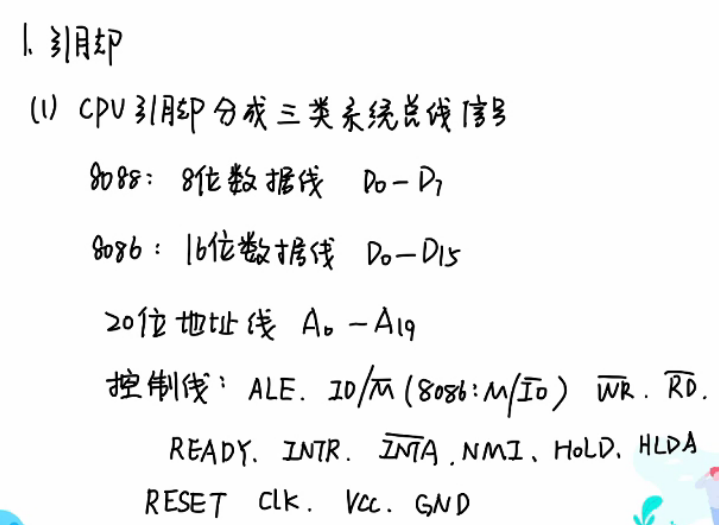 1. 引脚
(1) CPU引脚分成三类系统总线信号
8088: 8位数据线 D₀-D₇
8086: 16位数据线 D₀-D₁₅
20位地址线 A₀-A₁₉
控制线: ALE. IO/M̅ (8086:M/I̅O̅) W̅R̅. R̅D̅.
READY. INTR. I̅N̅T̅A̅. NMI、HOLD、HLDA
RESET CLK. VCC. GND